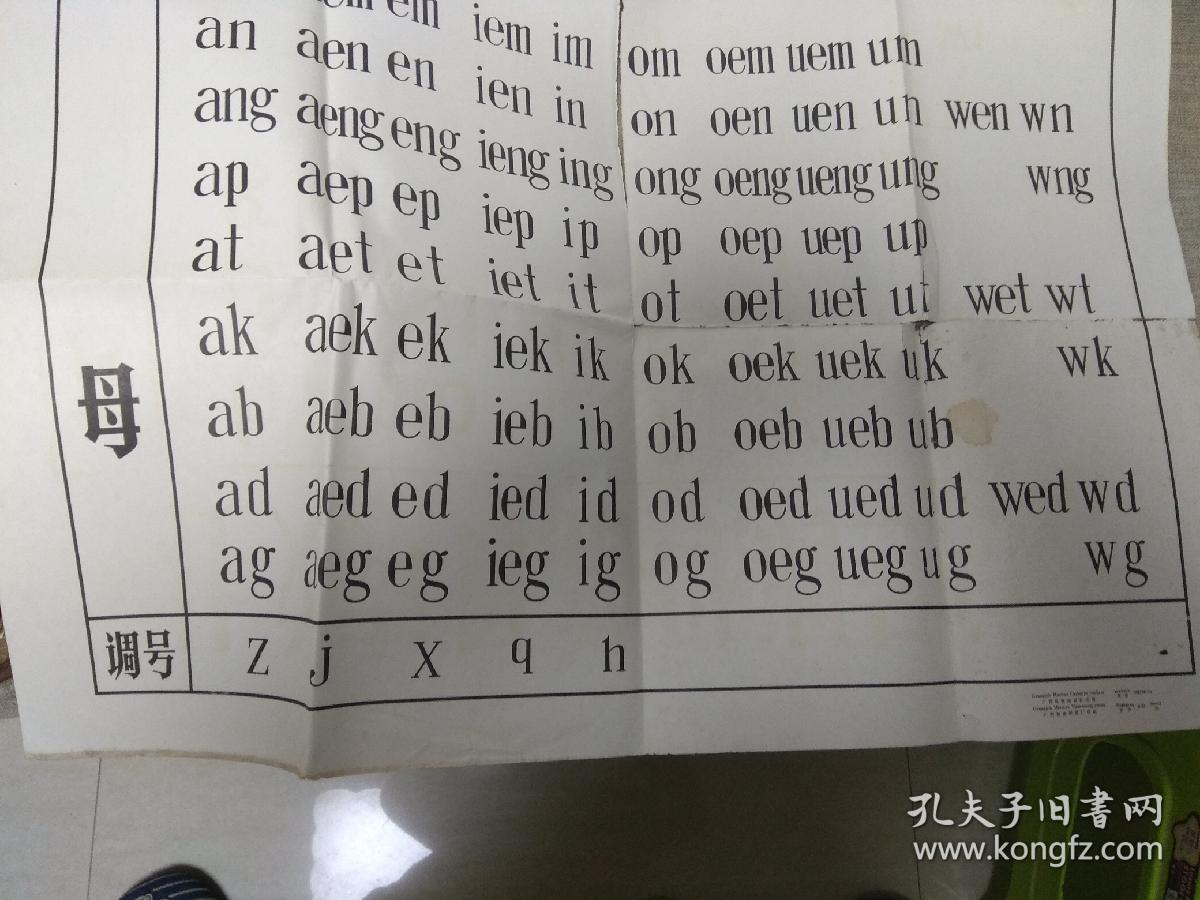 em iem im om oem uem um
an aen en ien in on oen uen un wen wn
ang aeng eng ieng ing ong oeng ueng ung wng
ap aep ep iep ip op oep uep up
at aet et iet it ot oet uet ut wet wt
ak aek ek iek ik ok oek uek uk wk
母
ab aeb eb ieb ib ob oeb ueb ub
ad aed ed ied id od oed ued ud wed wd
ag aeg eg ieg ig og oeg ueg ug wg
调号 z j x q h
孔夫子旧書网
www.kongfz.com